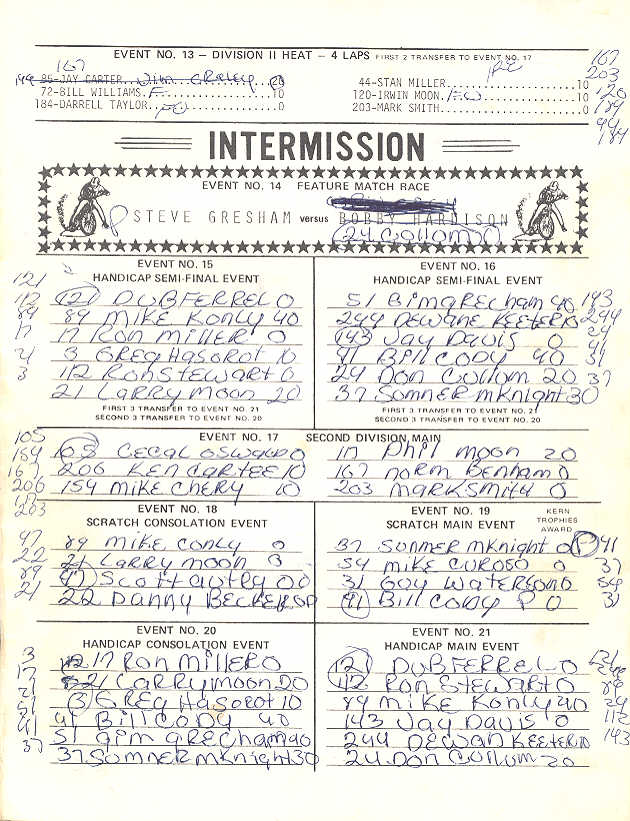 EVENT NO. 13 – DIVISION II HEAT – 4 LAPS FIRST 2 TRANSFER TO EVENT NO. 17
167
85-JAY CARTER
72-BILL WILLIAMS F 10
184-DARRELL TAYLOR 0
44-STAN MILLER 10
120-IRWIN MOON 10
203-MARK SMITH 0
167
203
120
184
INTERMISSION
EVENT NO. 14 FEATURE MATCH RACE
STEVE GRESHAM versus BOBBY HARDISON
24 Cullum 0
EVENT NO. 15
HANDICAP SEMI-FINAL EVENT
121
112
89
17
21
3
121 DUB FERREL 0
89 MIKE KONLY 40
17 RON MILLER 0
3 GREG HASOROT 10
112 RON STEWART 0
21 LARRY MOON 20
FIRST 3 TRANSFER TO EVENT NO. 21
SECOND 3 TRANSFER TO EVENT NO. 20
EVENT NO. 16
HANDICAP SEMI-FINAL EVENT
51 GIM GRECHAM 40
244 DEWANE KEETER 10
143 JAY DAVIS 0
41 BILL CODY 40
24 DON CULLUM 20
37 SOMNER MKNIGHT 30
143
244
24
41
51
37
FIRST 3 TRANSFER TO EVENT NO. 21
SECOND 3 TRANSFER TO EVENT NO. 20
EVENT NO. 17 SECOND DIVISION MAIN
105
184
167
206
17
203
CECAL OSWALD 0
206 KEN CARTEE 10
154 MIKE CHERY 10
117 Phil MOON 20
167 NORM BENHAM 0
203 MARK SMITH 0
EVENT NO. 18
SCRATCH CONSOLATION EVENT
47
22
89
21
89 MIKE CONLY 0
21 LARRY MOON 0
47 SCOTT AUTRY 0
22 DANNY BECKER
EVENT NO. 19
SCRATCH MAIN EVENT
KERN
TROPHIES
AWARD
37 SOMNER MKNIGHT 0
54 MIKE CUROSO 0
31 GUY WATERSON 0
41 BILL CODY P 0
41
37
54
31
EVENT NO. 20
HANDICAP CONSOLATION EVENT
3
17
21
51
41
37
17 RON MILLER 0
21 LARRY MOON 20
3 GREG HASOROT 10
41 BILL CODY 40
51 GIM GRECHAM 40
37 SOMNER MKNIGHT 30
EVENT NO. 21
HANDICAP MAIN EVENT
121 DUB FERREL 0
112 RON STEWART 0
89 MIKE KONLY 40
143 JAY DAVIS 0
244 DEWAN KEETER 10
24 DON CULLUM 20
121
89
24
112
143